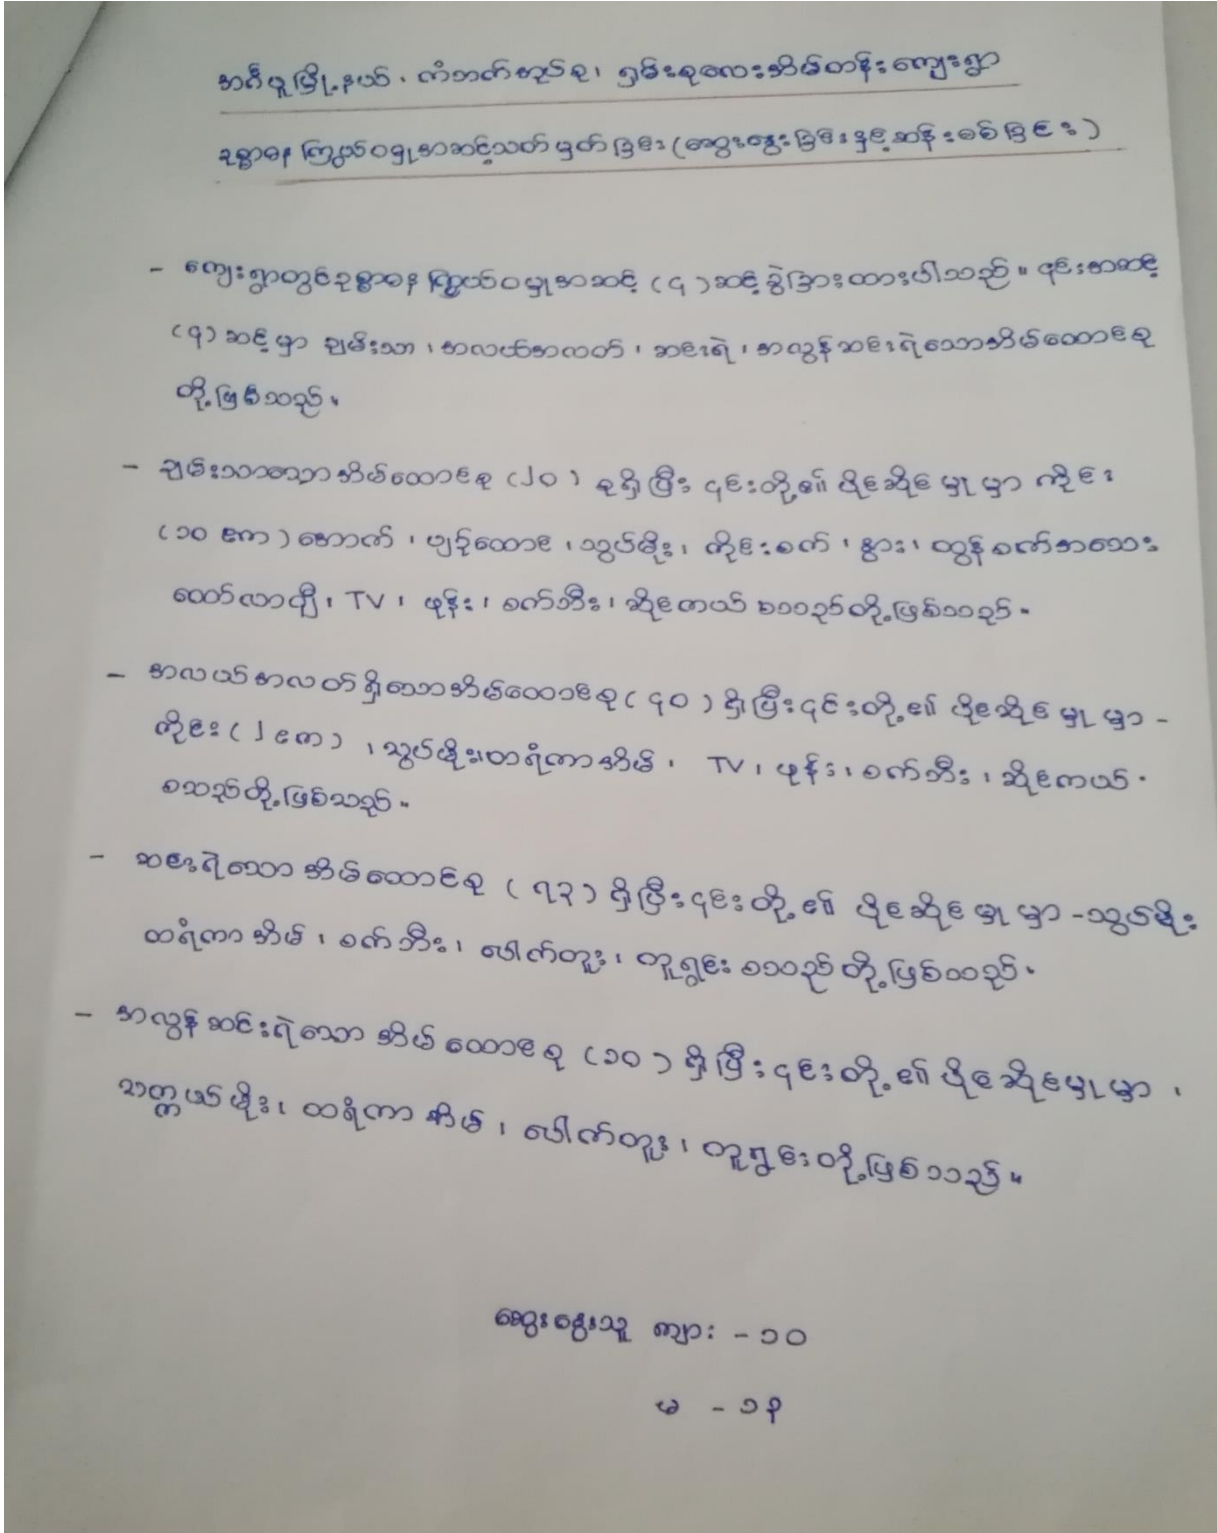 အင်္ဂပူမြို့နယ်၊ ကံဘက်အုပ်စု၊ ရှမ်းစုလေးအိမ်တန်းကျေးရွာ
ဥစ္စာဓနကြွယ်ဝမှုအဆင့်သတ်မှတ်ခြင်း (ဆွေးနွေးခြင်းနှင့်ဆန်းစစ်ခြင်း)
- ကျေးရွာတွင်ဥစ္စာဓန ကြွယ်ဝမှုအဆင့် (၄) ဆင့်ခွဲခြားထားပါသည်။ ၎င်းအဆင့်
(၄) ဆင့်မှာ ချမ်းသာ ၊ အလယ်အလတ် ၊ ဆင်းရဲ ၊ အလွန်ဆင်းရဲသောအိမ်ထောင်စု
တို့ဖြစ်သည်။
- ချမ်းသာသောအိမ်ထောင်စု (၂၀) စုရှိပြီး ၎င်းတို့၏ ပိုင်ဆိုင်မှုမှာ ကိုင်း
(၁၀ ဧက) အောက် ၊ ပျဉ်ထောင် ၊ သွပ်မိုး ၊ ကိုင်းစက် ၊ နွား ၊ ထွန်စက်အသေး
ထော်လာဂျီ ၊ TV ၊ ဖုန်း ၊ စက်ဘီး ၊ ဆိုင်ကယ် စသည်တို့ဖြစ်သည်။
- အလယ်အလတ်ရှိသောအိမ်ထောင်စု (၄၀) ရှိပြီး၎င်းတို့၏ ပိုင်ဆိုင်မှုမှာ -
ကိုင်း (၂ ဧက) ၊ သွပ်မိုး၊ထရံကာအိမ် ၊ TV ၊ ဖုန်း ၊ စက်ဘီး ၊ ဆိုင်ကယ် ၊
စသည်တို့ဖြစ်သည်။
- ဆင်းရဲသော အိမ်ထောင်စု (၇၃) ရှိပြီး၎င်းတို့၏ ပိုင်ဆိုင်မှုမှာ - သွပ်မိုး
ထရံကာအိမ် ၊ စက်ဘီး ၊ ပေါက်တူး ၊ တူရွင်း စသည်တို့ဖြစ်သည်။
- အလွန်ဆင်းရဲသော အိမ်ထောင်စု (၁၀) ရှိပြီး၎င်းတို့၏ပိုင်ဆိုင်မှုမှာ ၊
သက္ကယ်မိုး ၊ ထရံကာအိမ် ၊ ပေါက်တူး ၊ တူရွင်းတို့ဖြစ်သည်။
ဆွေးနွေးသူ ကျား - ၁၀
မ - ၁၃